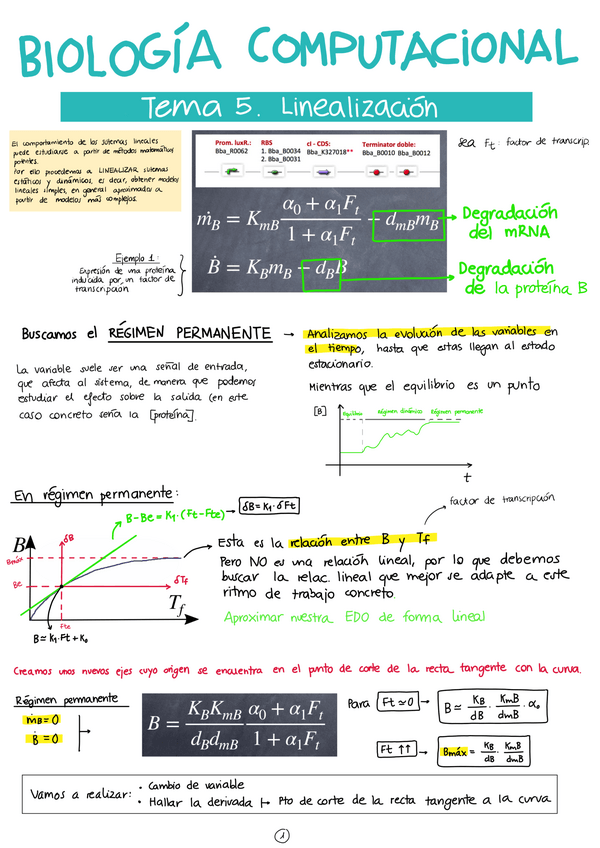 BIOLOGÍA COMPUTACIONAL
Tema 5. Linealización
El comportamiento de los sistemas lineales
puede estudiarse a partir de métodos matemáticos
potentes.
Por ello procedemos a LINEALIZAR sistemas
estáticos y dinámicos, es decir, obtener modelos
lineales simples, en general aproximados a
partir de modelos más complejos.
Prom. luxR.: RBS cI - CDS: Terminator doble:
Bba_R0062 1. Bba_B0034 Bba_K327018** Bba_B0010 Bba_B0012
2. Bba_B0031
Sea Ft: factor de transcrip.
ṁ_B = K_mB (α₀ + α₁F_t)/(1 + α₁F_t) − d_mB m_B
Degradación
del mRNA
Ejemplo 1:
Expresión de una proteína
inducida por un factor de
transcripción
Ḃ = K_B m_B − d_B B
Degradación
de la proteína B
Buscamos el RÉGIMEN PERMANENTE → Analizamos la evolución de las variables en
el tiempo, hasta que estas llegan al estado
estacionario.
La variable suele ser una señal de entrada,
que afecta al sistema, de manera que podemos
estudiar el efecto sobre la salida (en este
caso concreto sería la [proteína].
Mientras que el equilibrio es un punto
[B] Equilibrio Régimen dinámico Régimen permanente
t
En régimen permanente:
B-Be = K₁·(Ft-Fte) → δB = K₁·δFt
factor de transcripción
B δB
Bmáx
Be δTf
Tf
Fte
B ≃ K₁·Ft + K₀
Esta es la relación entre B y Tf
Pero NO es una relación lineal, por lo que debemos
buscar la relac. lineal que mejor se adapte a este
ritmo de trabajo concreto.
Aproximar nuestra EDO de forma lineal
Creamos unos nuevos ejes cuyo origen se encuentra en el punto de corte de la recta tangente con la curva.
Régimen permanente
ṁB = 0
Ḃ = 0
B = (K_B K_mB)/(d_B d_mB) (α₀ + α₁F_t)/(1 + α₁F_t)
Para Ft ≃ 0 → B ≃ KB/dB · KmB/dmB · α₀
Ft ↑↑ → Bmáx = KB/dB · KmB/dmB
Vamos a realizar: • Cambio de variable
• Hallar la derivada ↦ Pto de corte de la recta tangente a la curva
1